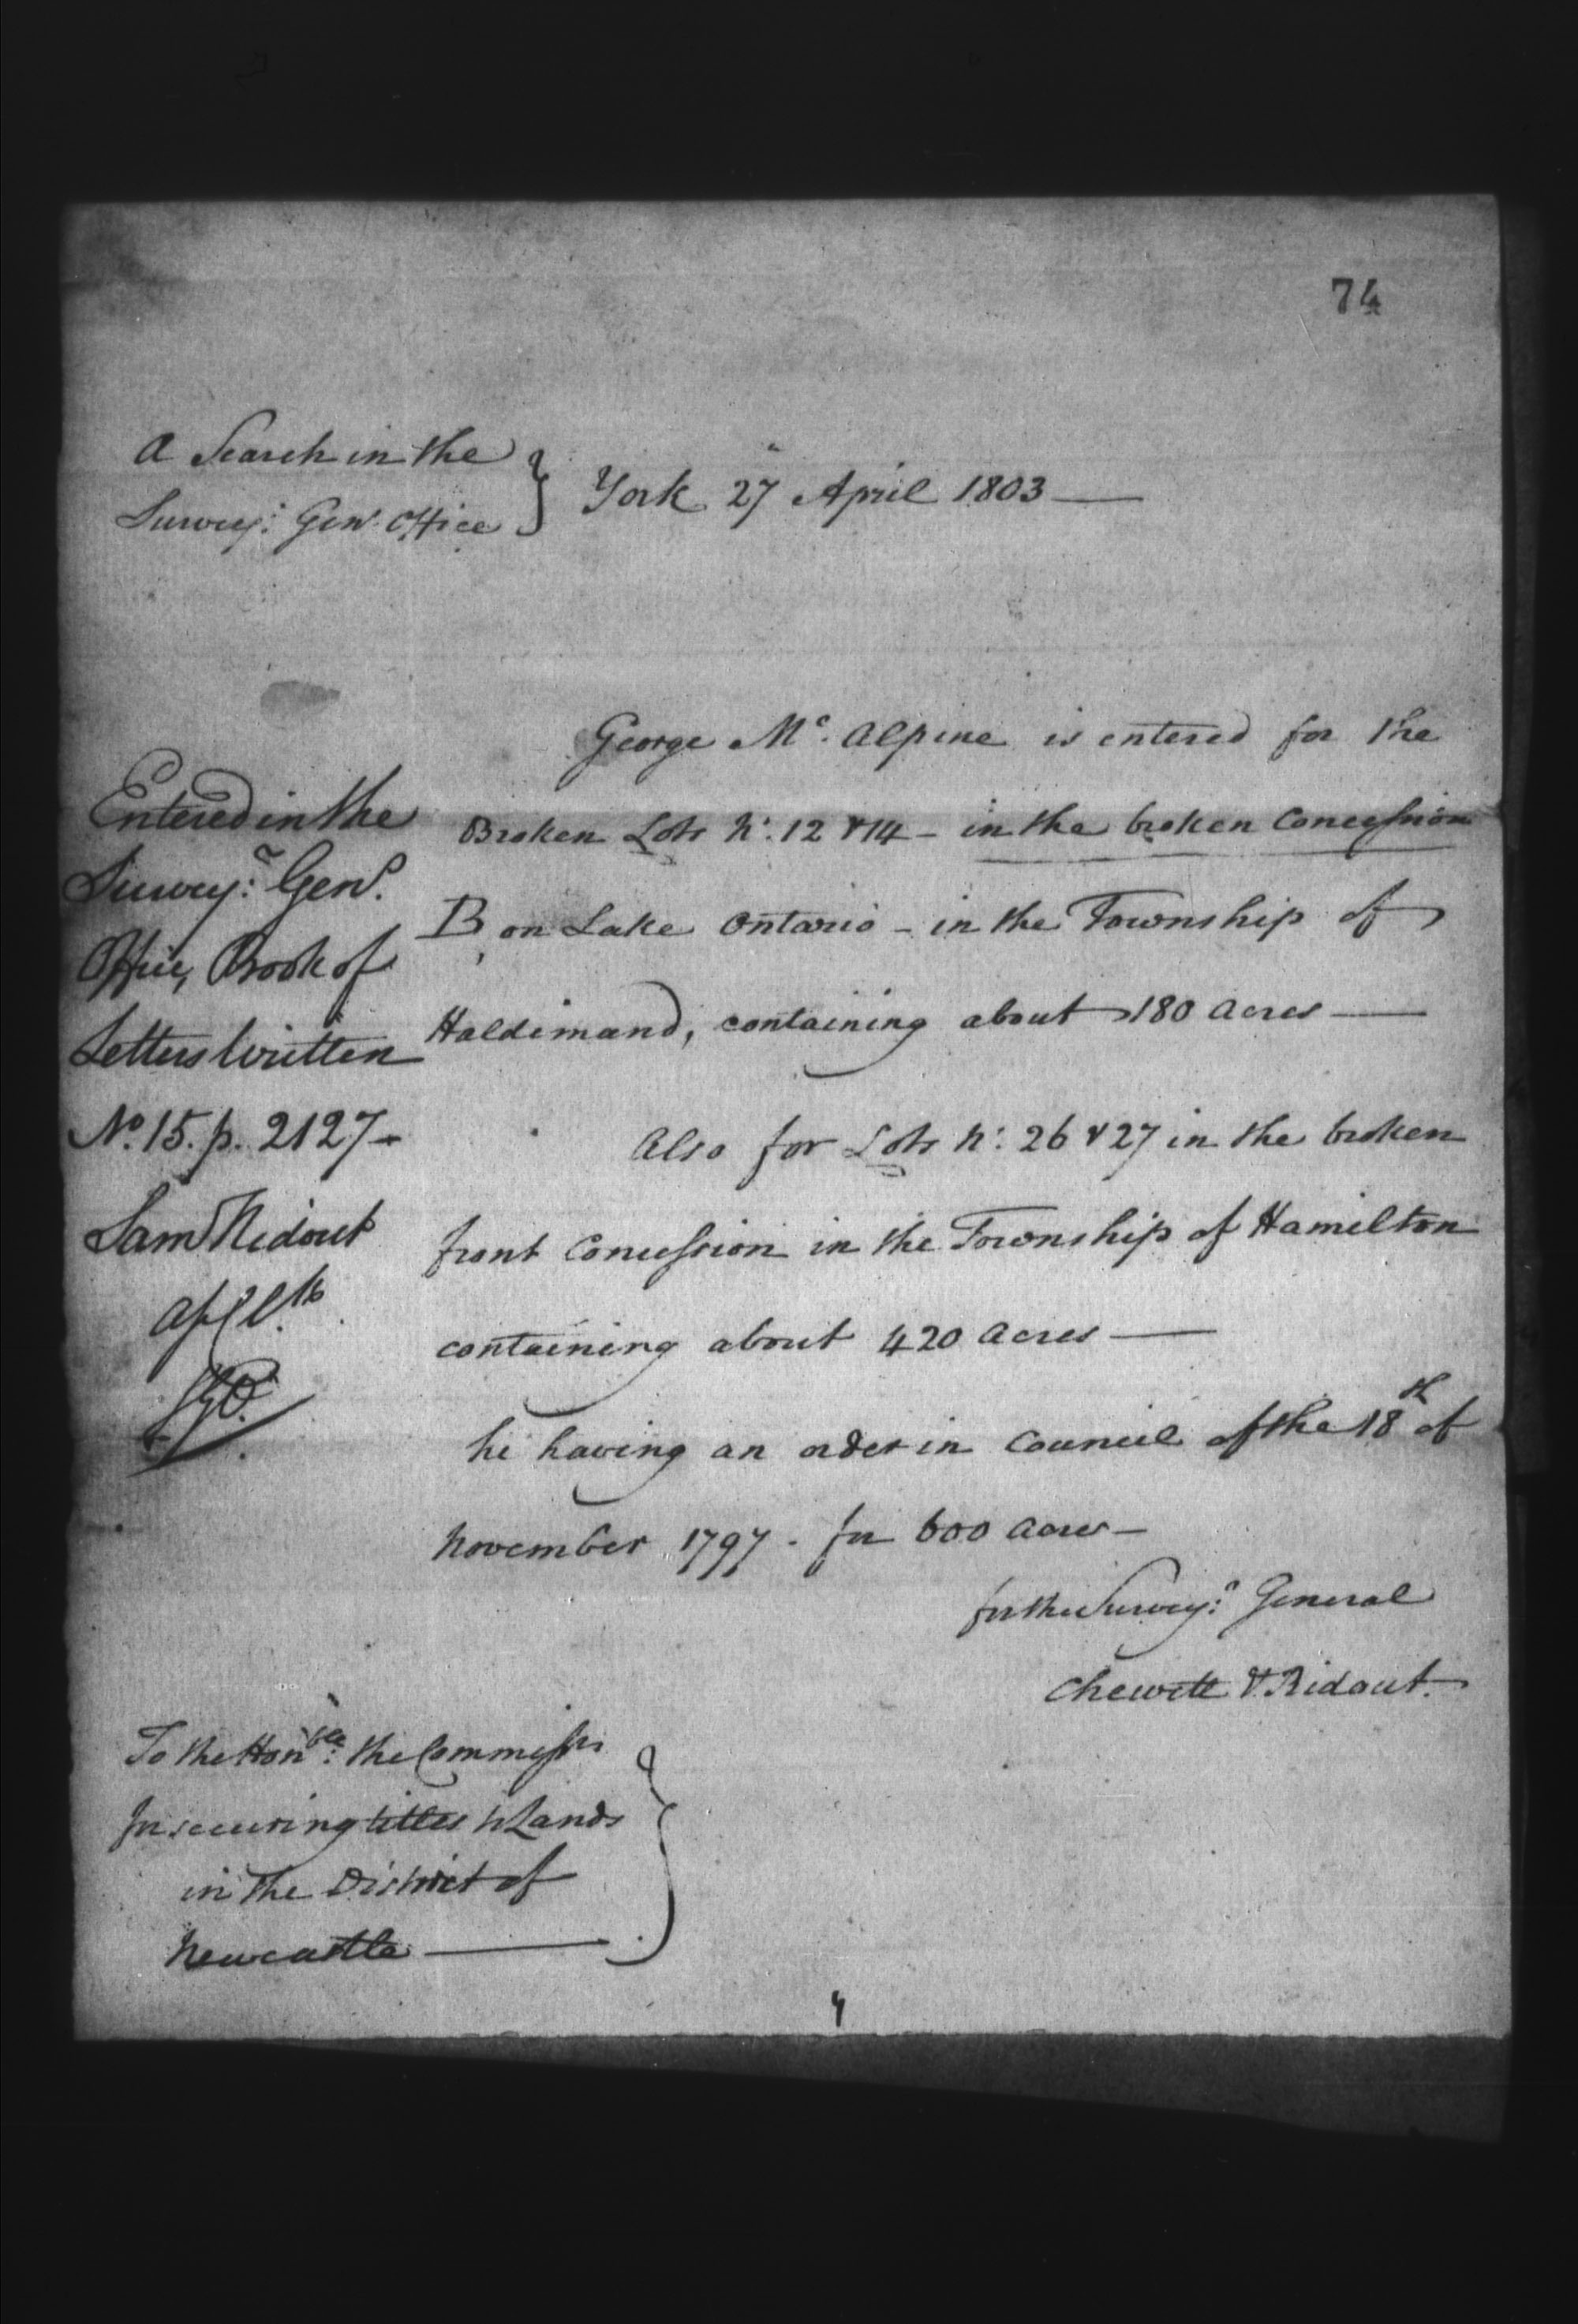 74
A Search in the
Survey.r Gen.l Office } York 27 April 1803 —
George Mc. Alpine is entered for the
Broken Lots N.o 12 & 14 - in the broken Concession
B on Lake Ontario - in the Township of
Haldimand, containing about 180 acres —
Also for Lots N.o 26 & 27 in the broken
front Concession in the Township of Hamilton
containing about 420 acres —
he having an order in Council of the 18th of
November 1797 - for 600 acres —
for the Survey.r General
Chewett & Ridout.
Entered in the
Survey.r Genl.
Office, Book of
Letters Written
No. 15. p. 2127 -
Sam Ridout
To the Honble. the Commissrs
for securing titles to Lands
in the District of
Newcastle —